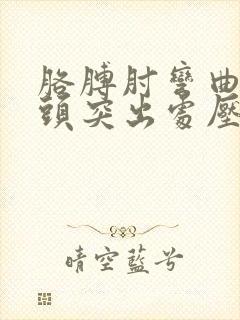 胳膊肘彎曲
頭突出處壓
晴空藍兮